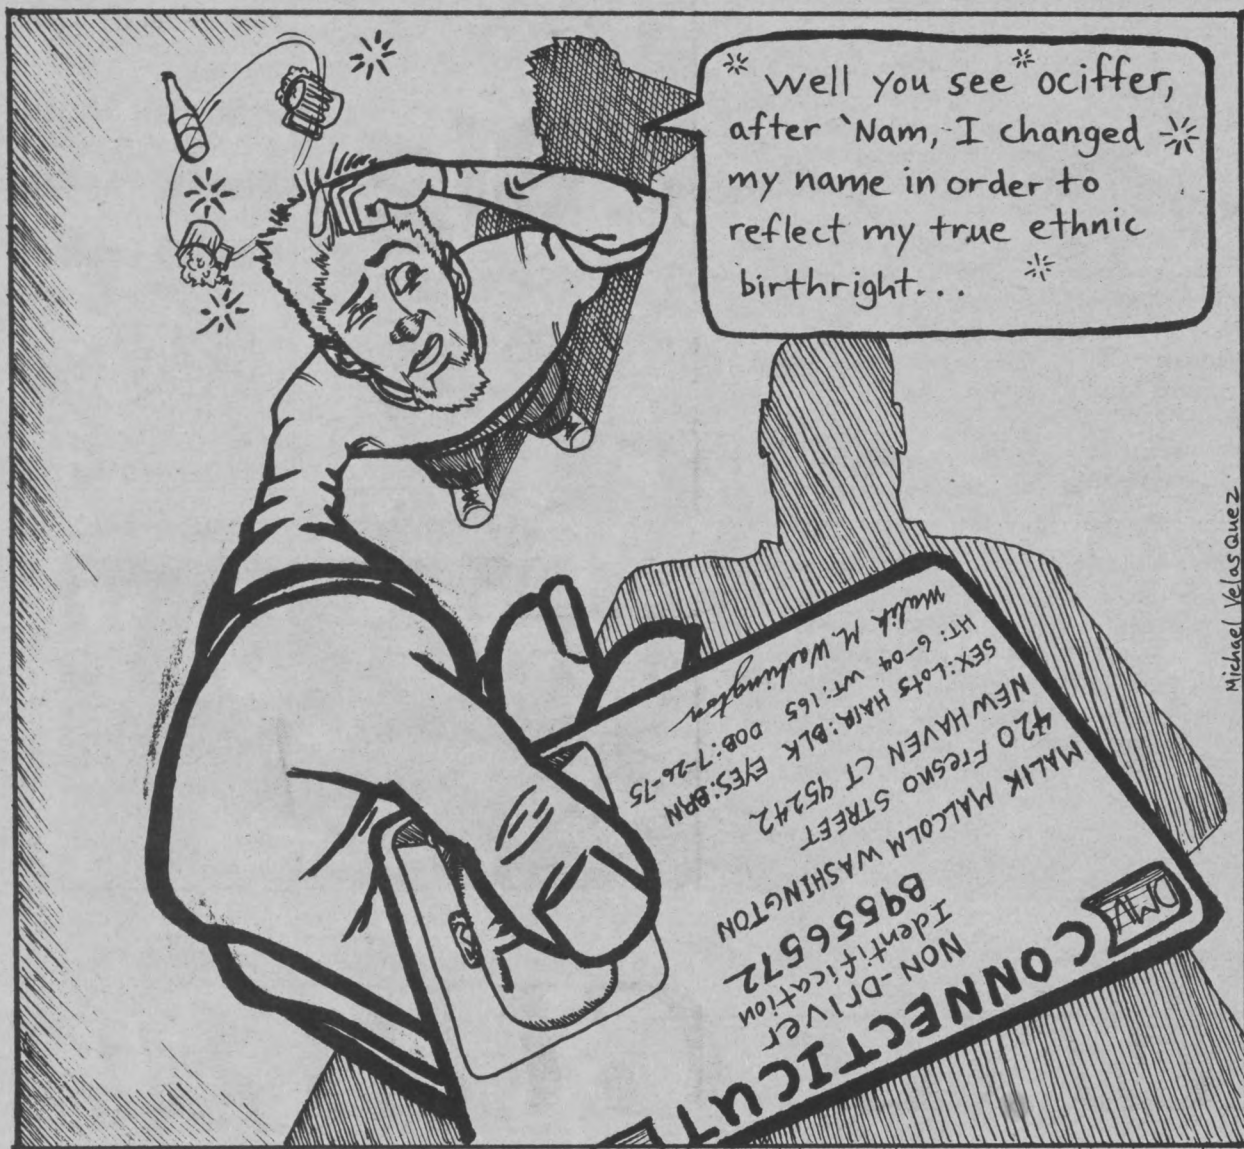 Well you see ociffer,
after 'Nam, I changed
my name in order to
reflect my true ethnic
birthright...
Michael Velasquez
CONNECTICUT
DMV
NON-Driver
Identification
B9556572
MALIK MALCOLM WASHINGTON
420 Fresno STREET
NEW HAVEN CT 95242
SEX: Lots HAIR: BLK EYES: BRN
HT: 6-04 WT: 165 DOB: 7-26-75
Malik M. Washington